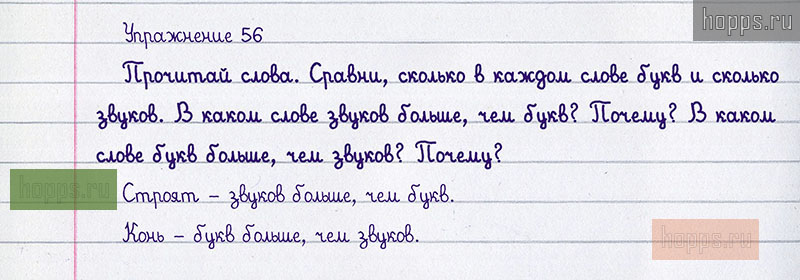 hopps.ru
Упражнение 56
Прочитай слова. Сравни, сколько в каждом слове букв и сколько
звуков. В каком слове звуков больше, чем букв? Почему? В каком
слове букв больше, чем звуков? Почему?
hopps.ru
Строят – звуков больше, чем букв.
Конь – букв больше, чем звуков.
hopps.ru